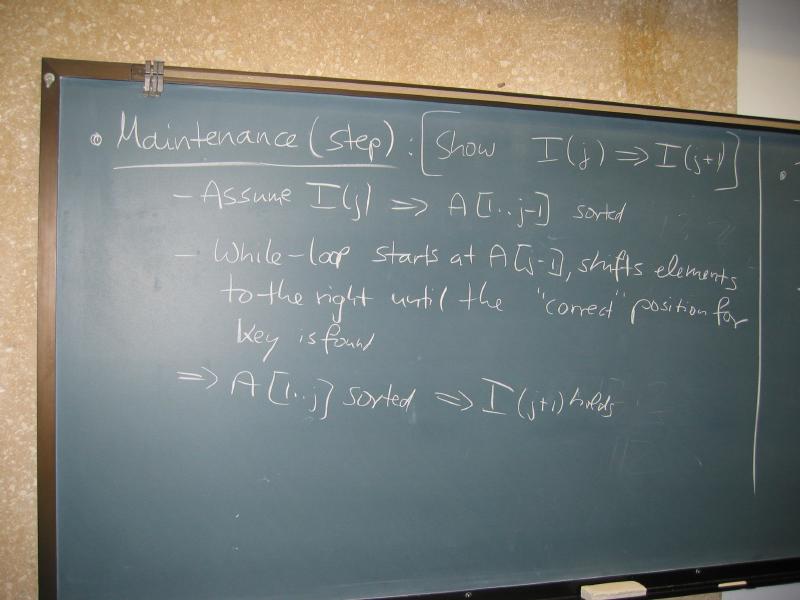 • Maintenance (step) : [Show I(j) ⇒ I(j+1)]
– Assume I(j) ⇒ A[1..j-1] sorted
– While-loop starts at A[j-1], shifts elements
to the right until the "correct" position for
key is found
⇒ A[1..j] sorted ⇒ I(j+1) holds